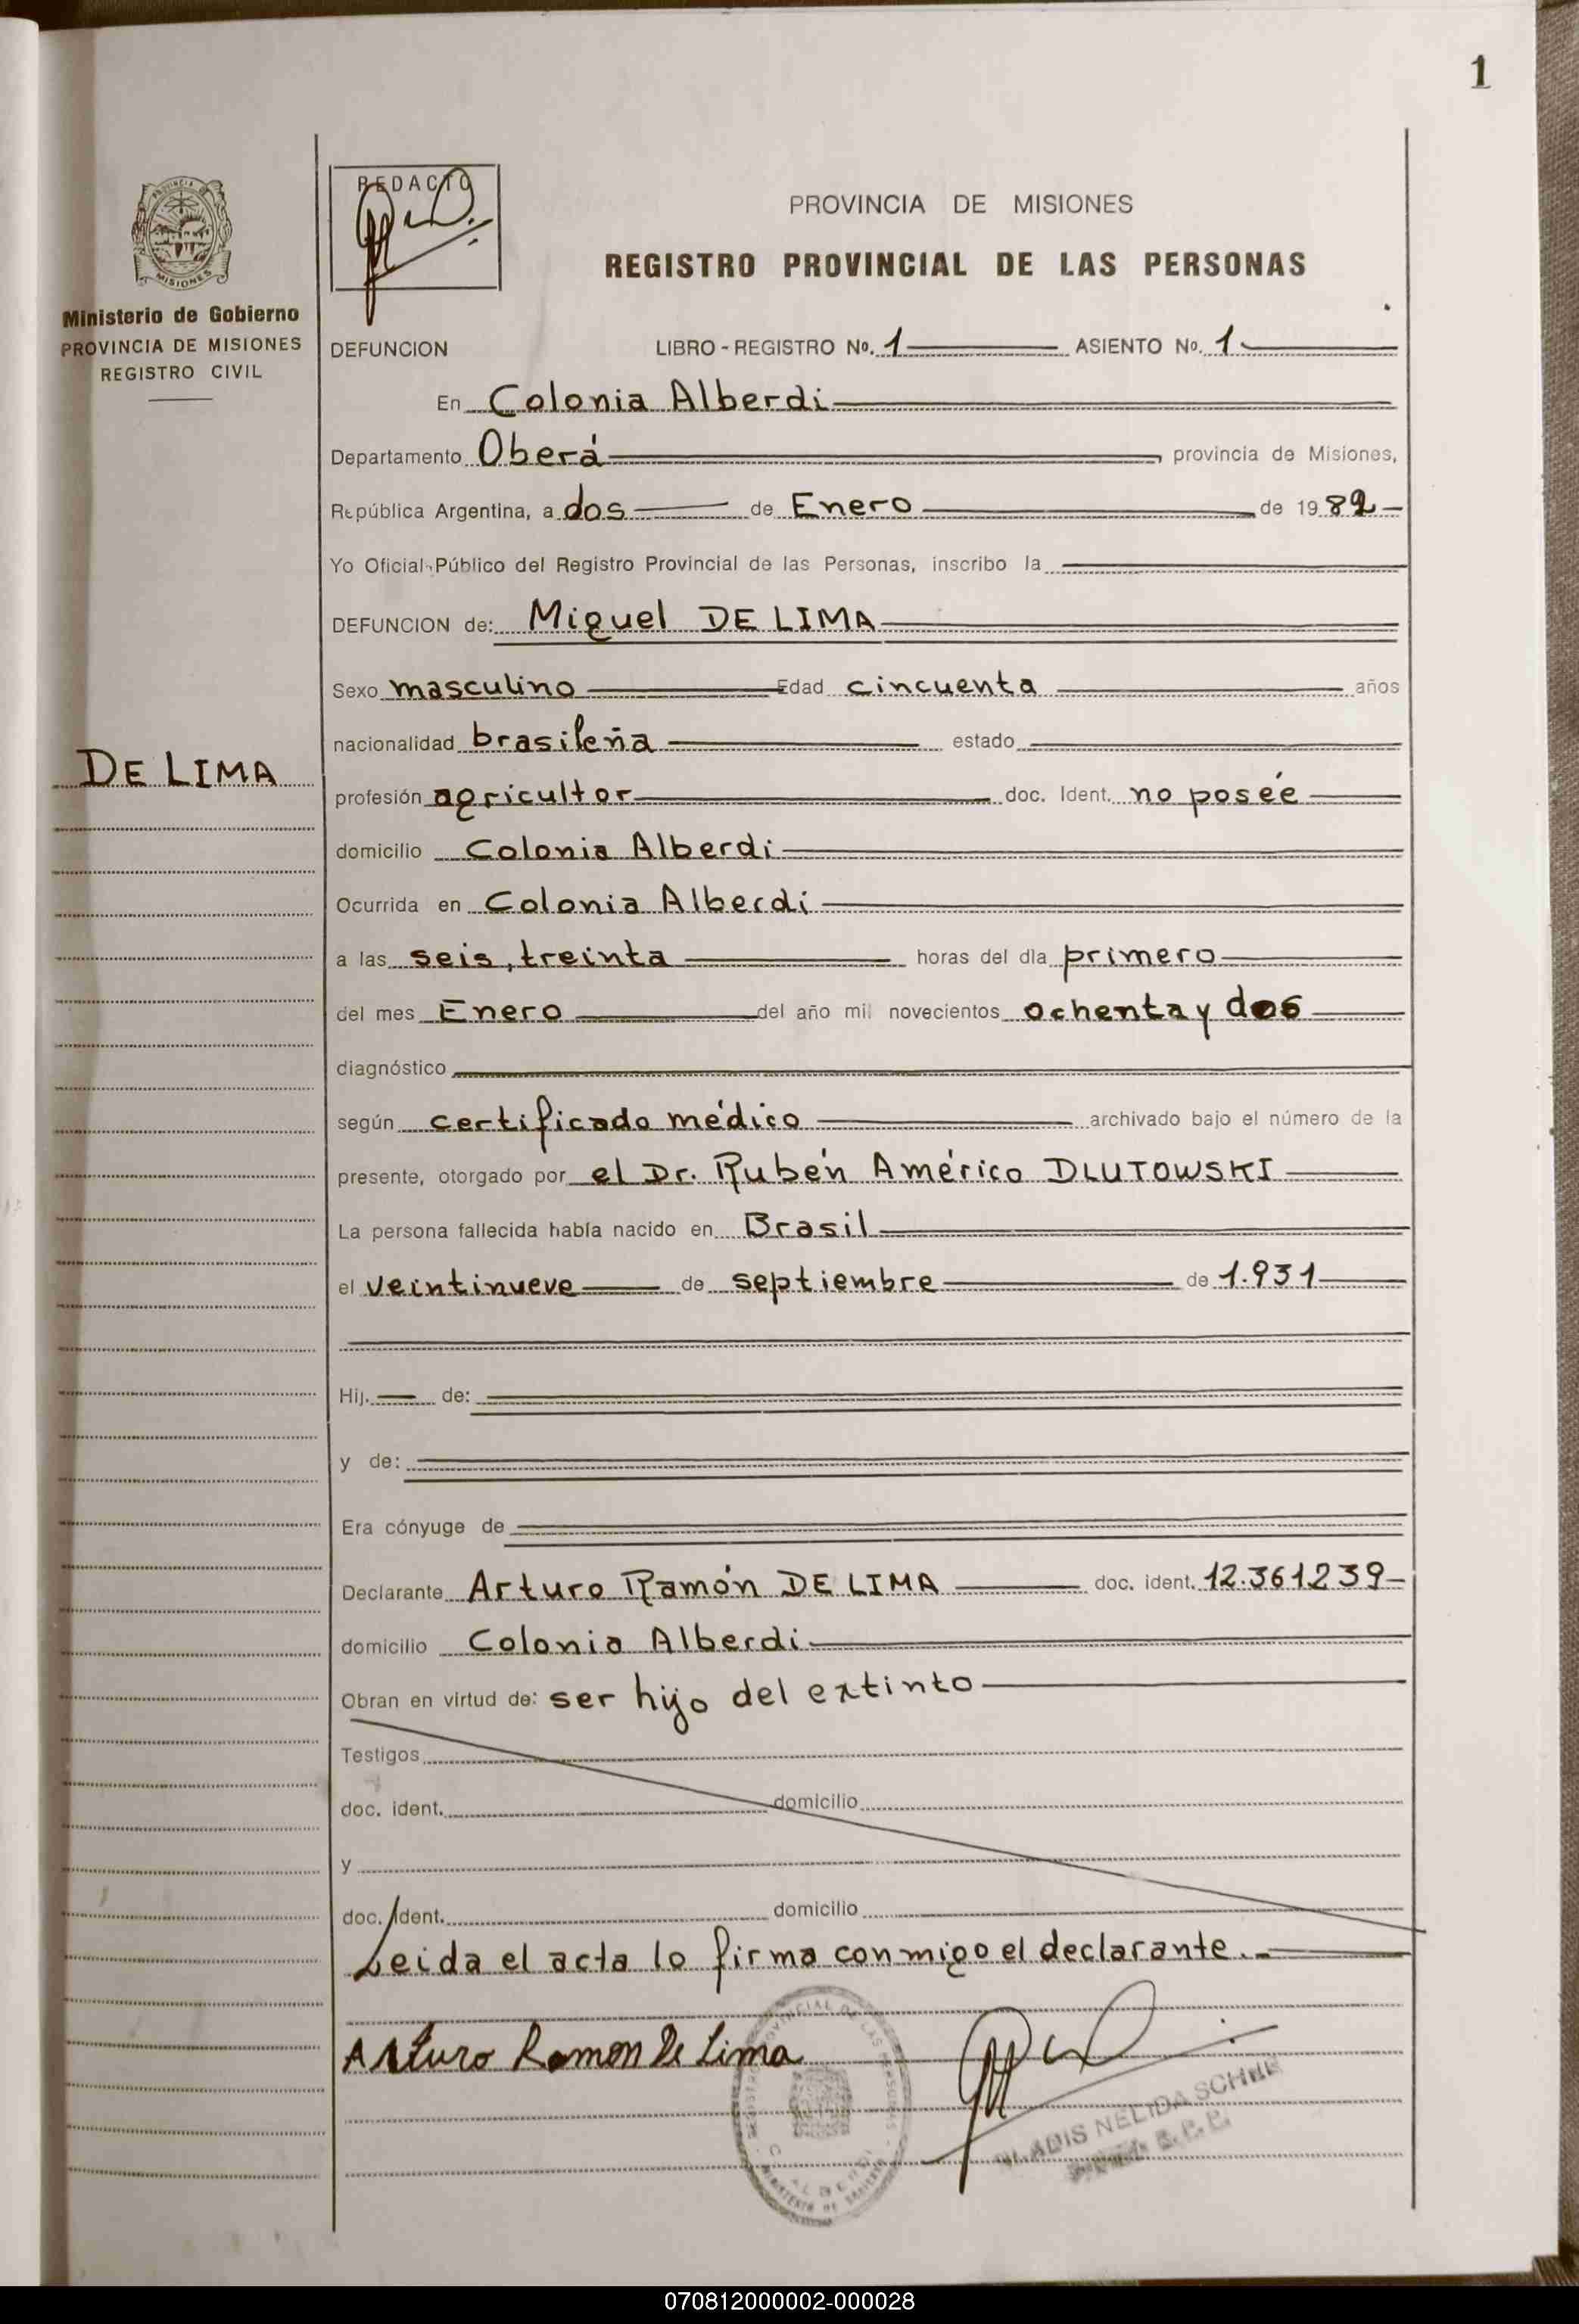 1
REDACTO
PROVINCIA DE MISIONES
REGISTRO PROVINCIAL DE LAS PERSONAS
PROVINCIA DE
MISIONES
Ministerio de Gobierno
PROVINCIA DE MISIONES
REGISTRO CIVIL
DE LIMA
DEFUNCION LIBRO-REGISTRO Nº. 1 ASIENTO Nº. 1
En Colonia Alberdi
Departamento Oberá, provincia de Misiones,
República Argentina, a dos de Enero de 1982
Yo Oficial Público del Registro Provincial de las Personas, inscribo la
DEFUNCION de: Miguel DE LIMA
Sexo masculino Edad cincuenta años
nacionalidad brasileña estado
profesión agricultor doc. Ident. no poseé
domicilio Colonia Alberdi
Ocurrida en Colonia Alberdi
a las seis, treinta horas del dia primero
del mes Enero del año mil novecientos ochenta y dos
diagnóstico
según certificado médico archivado bajo el número de la
presente, otorgado por el Dr. Rubén Américo DLUTOWSKI
La persona fallecida había nacido en Brasil
el veintinueve de septiembre de 1.931
Hij. de:
y de:
Era cónyuge de
Declarante Arturo Ramón DE LIMA doc. ident. 12.361239
domicilio Colonia Alberdi
Obran en virtud de: ser hijo del extinto
Testigos
doc. ident. domicilio
y
doc. ident. domicilio
Leida el acta lo firma conmigo el declarante.-
Arturo Ramon De Lima
NELIDA
070812000002-000028